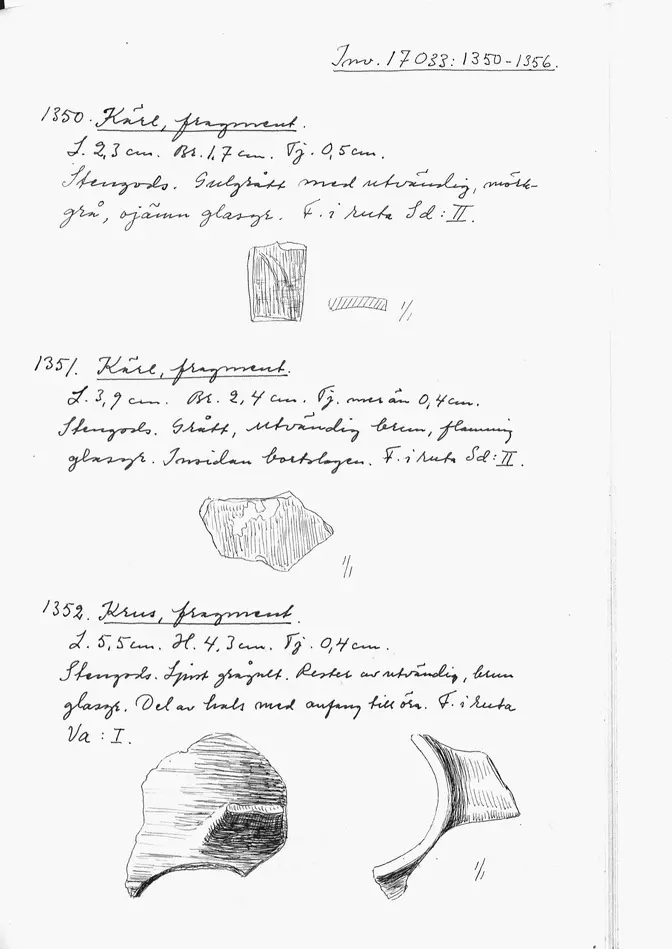 Inv. 17033:1350-1356.
1350. Kärl, fragment.
L. 2,3 cm. Br. 1,7 cm. Tj. 0,5 cm.
Stengods. Gulgrått med utvändig, mörk-
grå, ojämn glasyr. F. i ruta Sd:II.
1/1
1351. Kärl, fragment.
L. 3,9 cm. Br. 2,4 cm. Tj. mer än 0,4 cm.
Stengods. Grått, utvändig brun, flammig
glasyr. Insidan bortslagen. F. i ruta Sd:II.
1/1
1352. Krus, fragment.
L. 5,5 cm. H. 4,3 cm. Tj. 0,4 cm.
Stengods. Ljust grågult. Rester av utvändig, brun
glasyr. Del av hals med anfang till öra. F. i ruta
Va : I.
1/1